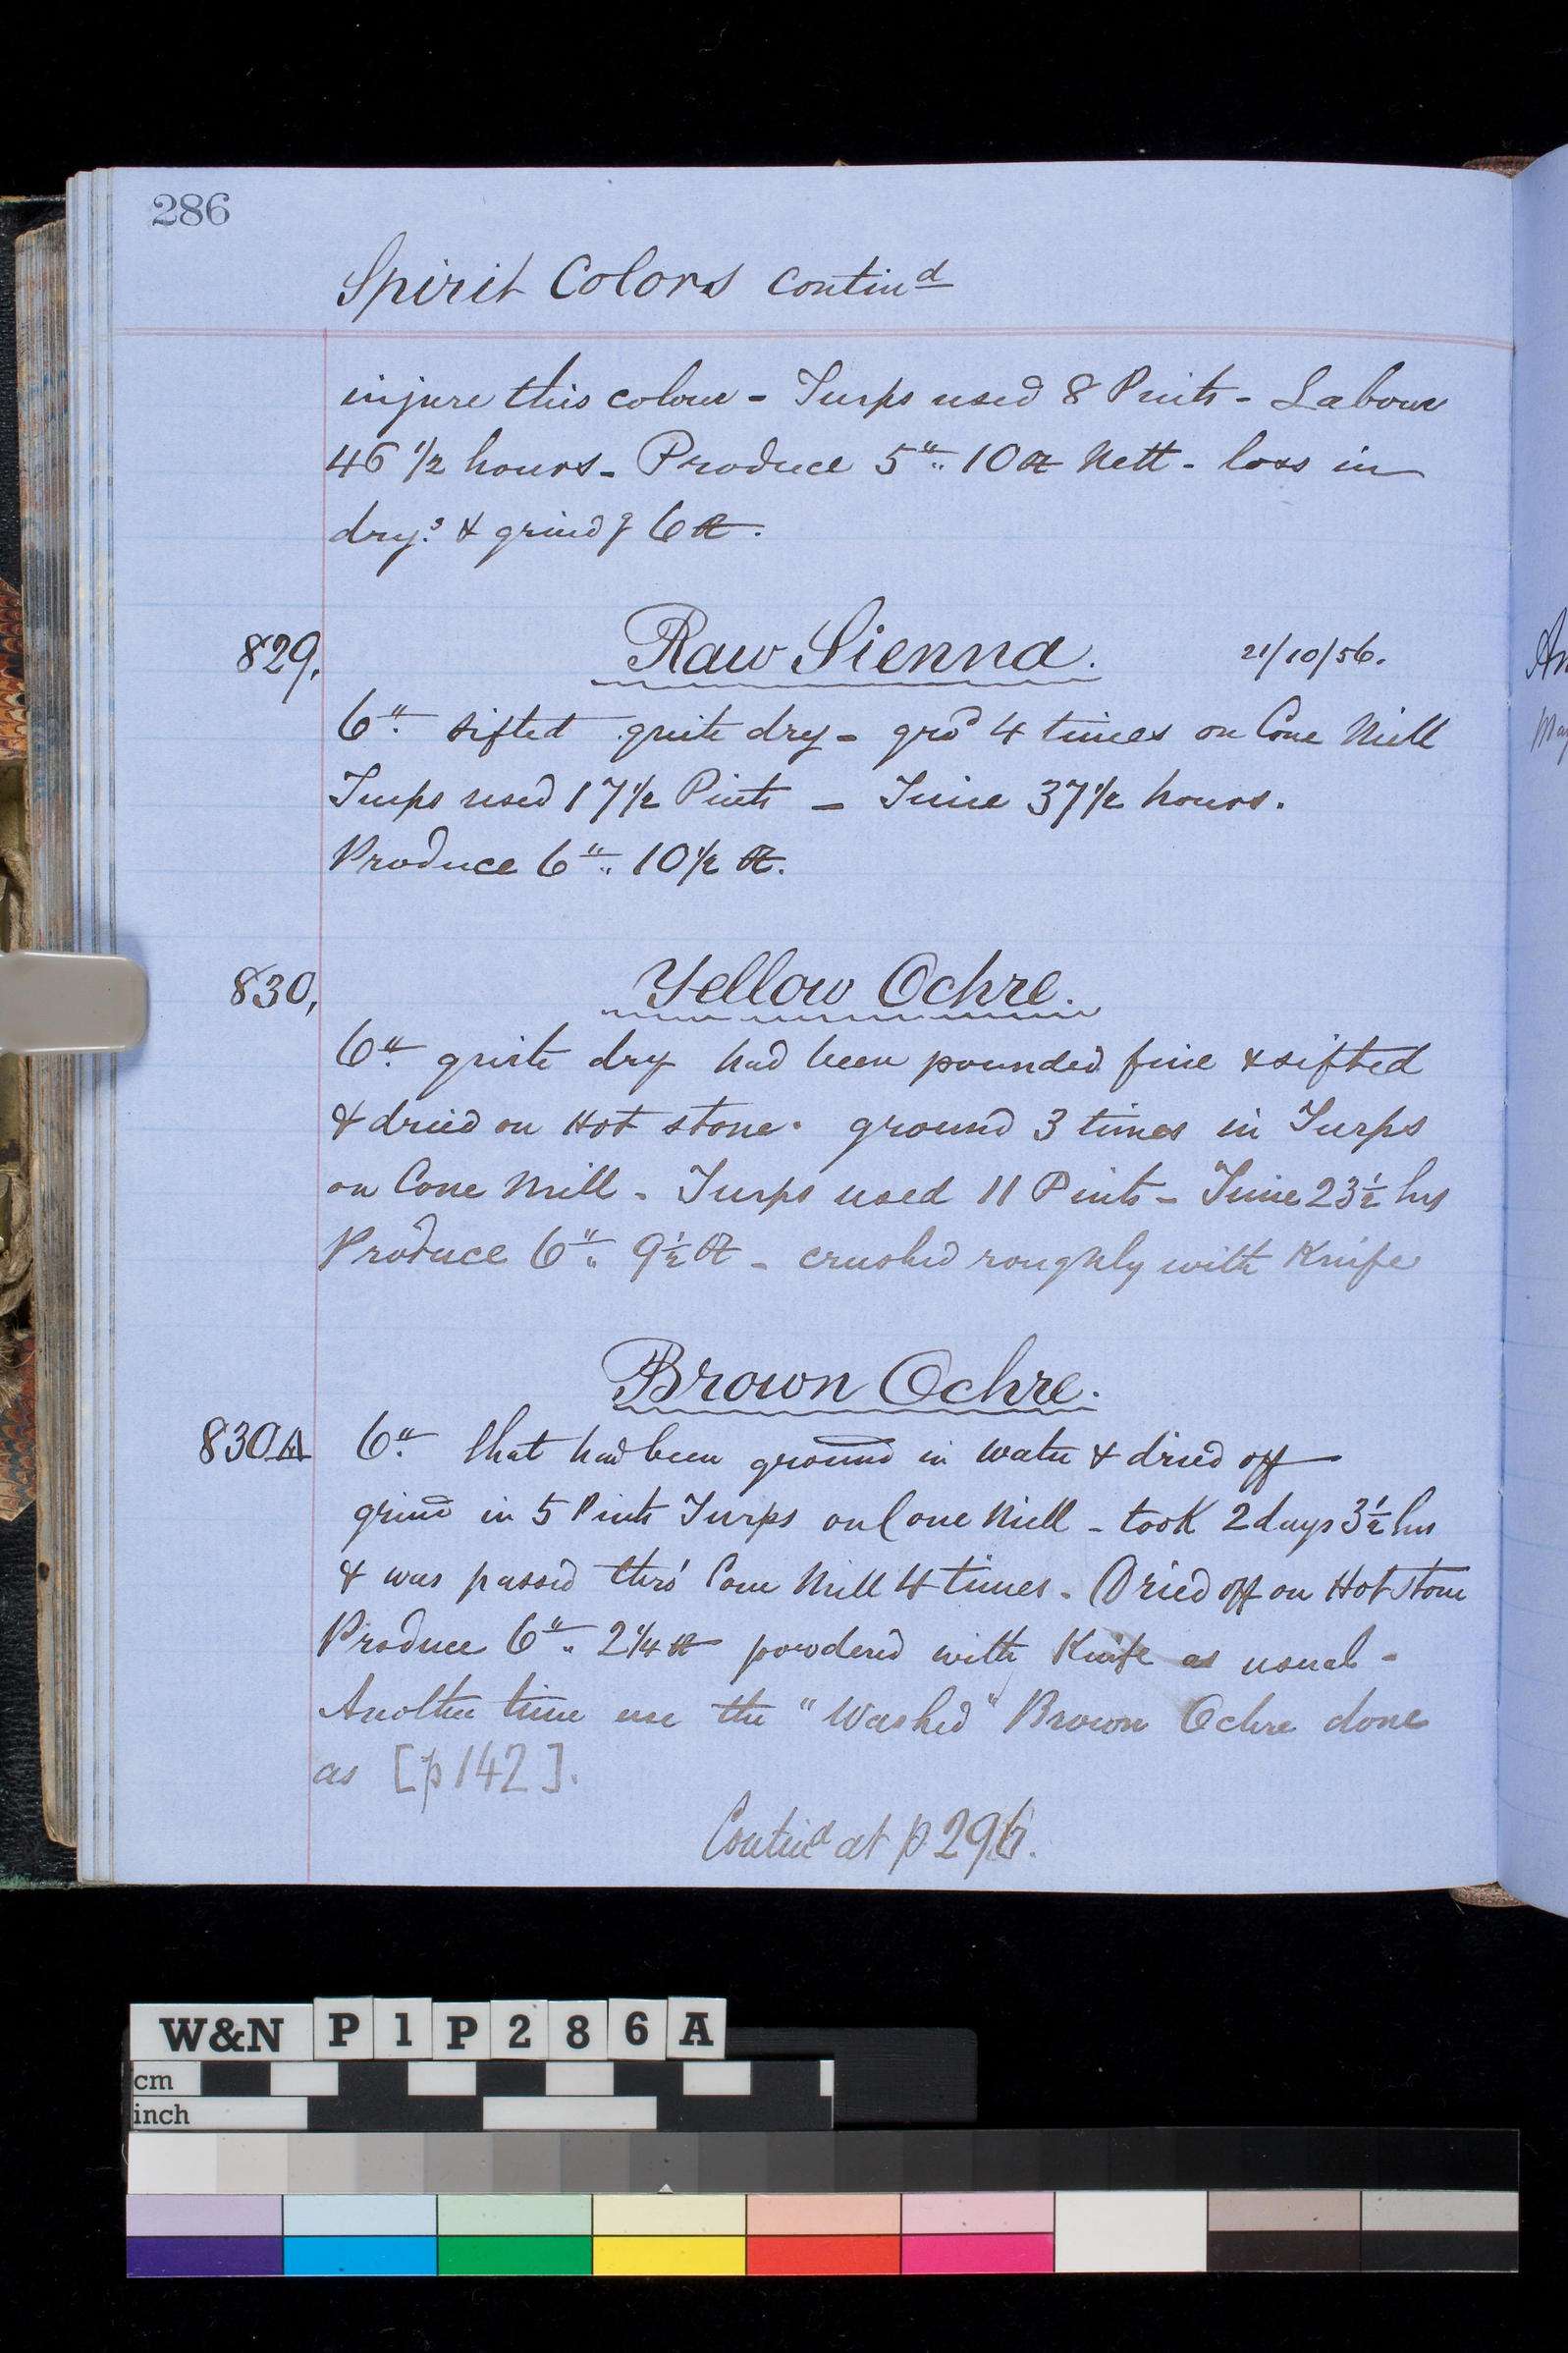 286
Spirit Colors contin^d
injure this colour - Turps used 8 Pints - Labour
46 1/2 hours - Produce 5 ℔ .. 10 oz Nett - loss in
dry^g & grind^g 6 oz.
829. Raw Sienna. 21/10/56.
6 ℔ sifted quite dry - gr^d 4 times on Cone Mill
Turps used 17 1/2 Pints - Time 37 1/2 hours.
Produce 6 ℔ .. 10 1/2 oz.
830, Yellow Ochre.
6 ℔ quite dry had been pounded fine & sifted
& dried on Hot stone. ground 3 times in Turps
on Cone Mill - Turps used 11 Pints - Time 23 1/2 hrs
Produce 6 ℔ .. 9 1/2 oz - crushed roughly with Knife
Brown Ochre.
830A 6 ℔ that had been ground in water & dried off
grind in 5 Pints Turps on Cone Mill - took 2 days 3 1/2 hrs
& was passed thro' Cone Mill 4 times. Dried off on Hot Stone
Produce 6 ℔ .. 2 1/4 oz powdered with Knife as usual -
Another time use the "Washed" Brown Ochre done
as [p 142].
Contin^d at p 296.
W&N P1P286A
cm
inch